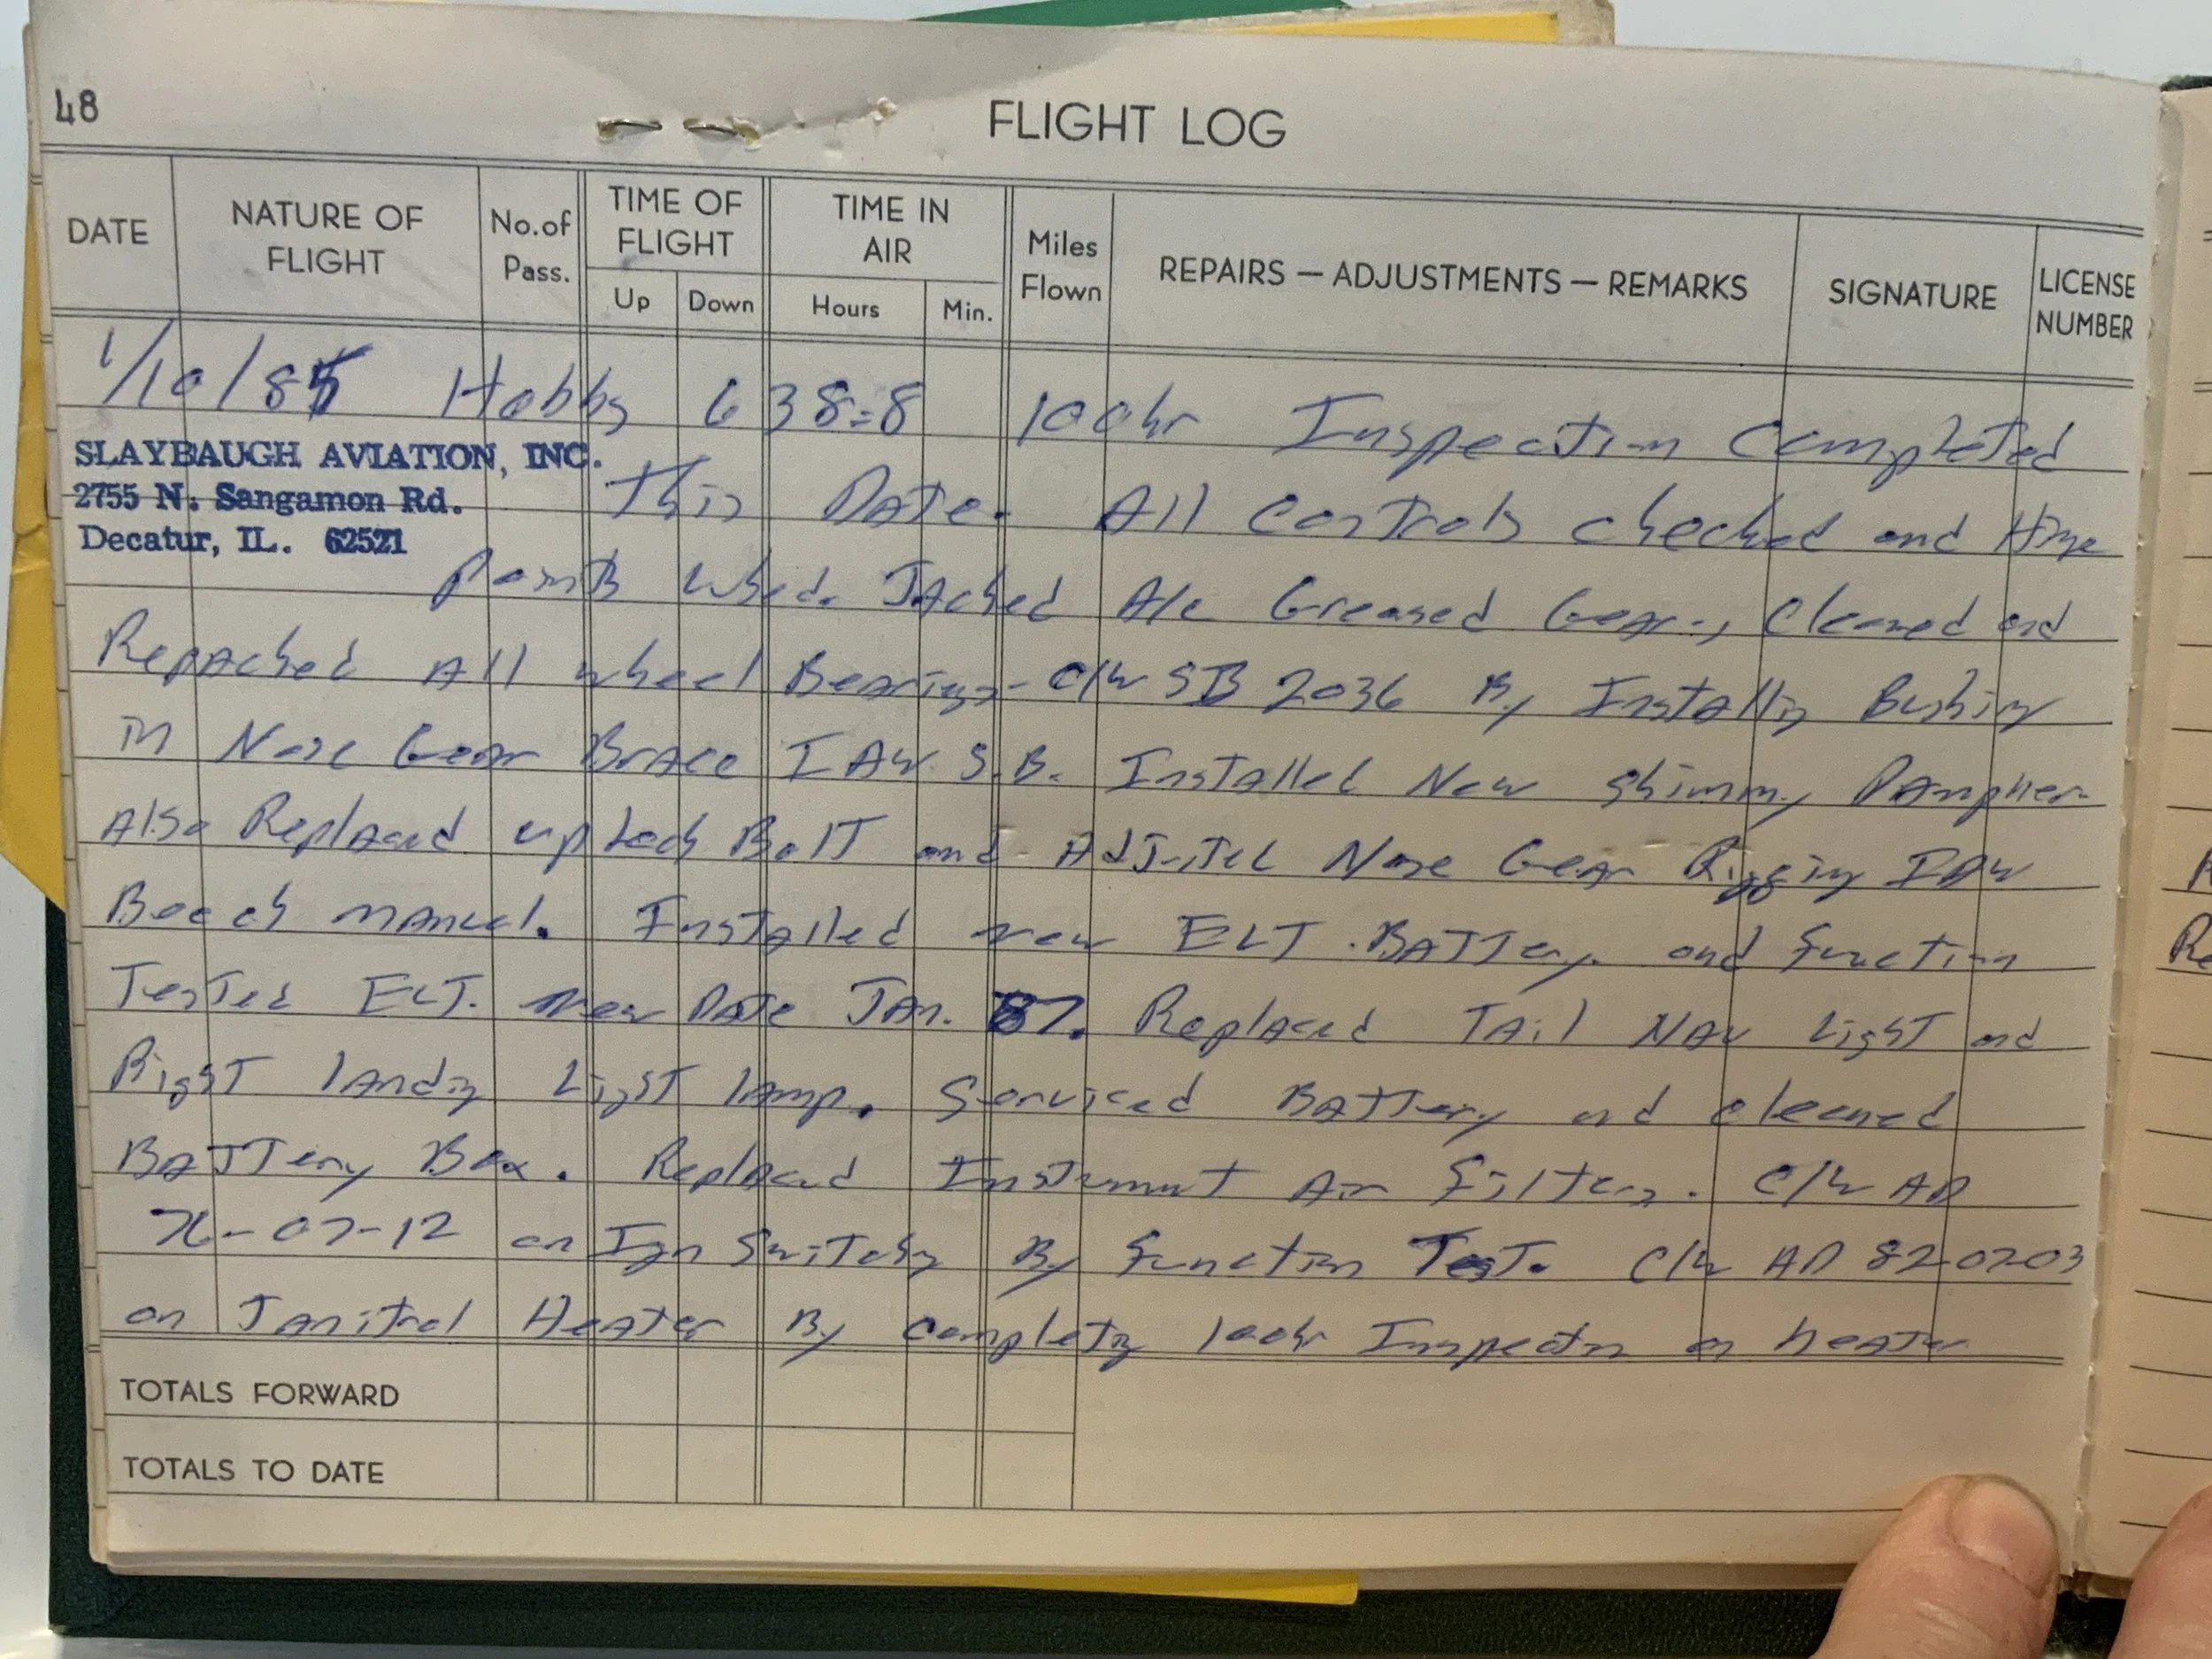 48
FLIGHT LOG
DATE NATURE OF FLIGHT No.of Pass. TIME OF FLIGHT Up Down TIME IN AIR Hours Min. Miles Flown REPAIRS — ADJUSTMENTS — REMARKS SIGNATURE LICENSE NUMBER
1/10/85 Hobbs 638.8 100hr Inspection Completed
SLAYBAUGH AVIATION, INC.
2755 N. Sangamon Rd.
Decatur, IL. 62521
This Date. All Controls checked and Hinge
points lubed. Jacked A/C Greased Gear, Cleaned and
Repacked All wheel Bearings - C/W SB 2036 By Installing Bushing
in Nose Gear Brace IAW S.B. Installed New Shimmy Dampner
Also Replaced uplock Bolt and Adjusted Nose Gear Rigging IAW
Beech manual. Installed new ELT Battery and function
Tested ELT. New Date Jan. 87. Replaced Tail Nav Light and
Right landing Light lamp. Serviced Battery and cleaned
Battery Box. Replaced Instrument Air filters. C/W AD
76-07-12 on Ign Switches By function Test. C/W AD 82-0203
on Janitrol Heater By completing 100hr Inspection on heater
TOTALS FORWARD
TOTALS TO DATE